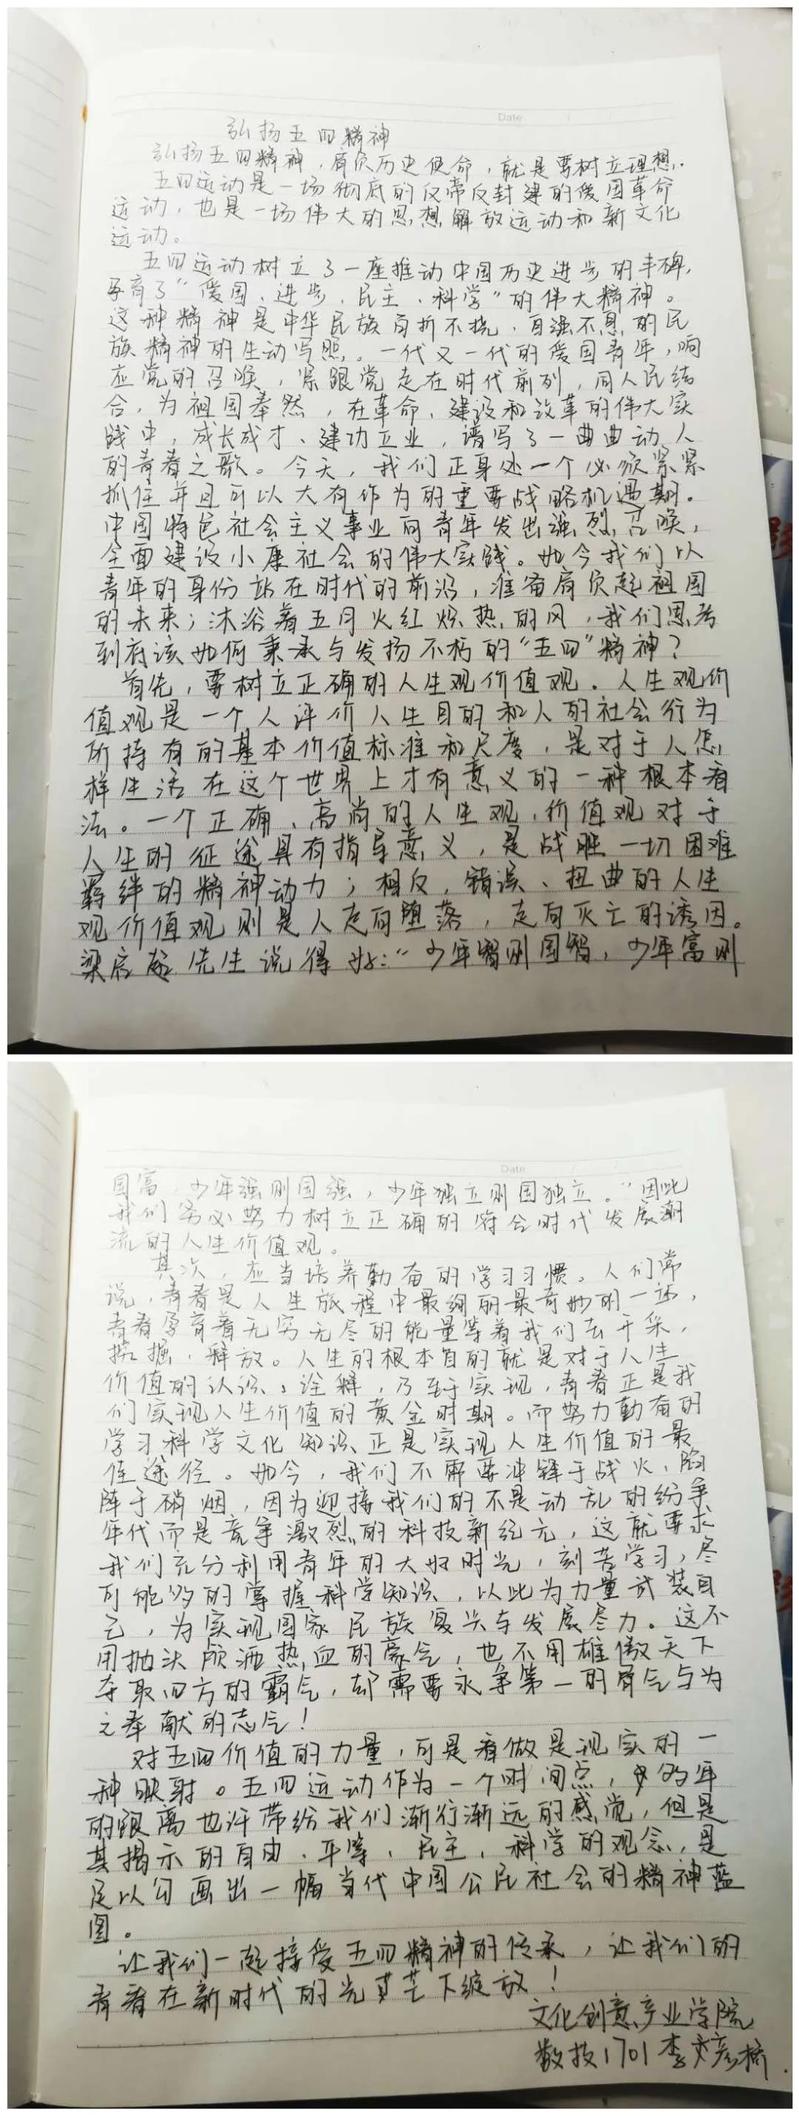 Date
弘扬五四精神
弘扬五四精神，肩负历史使命，就是要树立理想。
五四运动是一场彻底的反帝反封建的爱国革命
运动，也是一场伟大的思想解放运动和新文化
运动。
五四运动树立了一座推动中国历史进步的丰碑，
孕育了“爱国、进步、民主、科学”的伟大精神。
这种精神是中华民族百折不挠、自强不息的民
族精神的生动写照。一代又一代的爱国青年，响
应党的召唤，紧跟党走在时代前列，同人民结
合，为祖国奉然，在革命、建设和改革的伟大实
践中，成长成才、建功立业，谱写了一曲曲动人
的青春之歌。今天，我们正身处一个必须紧紧
抓住并且可以大有作为的重要战略机遇期。
中国特色社会主义事业向青年发出强烈召唤，
全面建设小康社会的伟大实践。如今我们以
青年的身份站在时代的前沿，准备肩负起祖国
的未来；沐浴着五月火红炽热的风，我们思考
到底该如何秉承与发扬不朽的“五四”精神？
首先，要树立正确的人生观价值观。人生观价
值观是一个人评价人生目的和人的社会行为
所持有的基本价值标准和尺度，是对于人怎
样生活在这个世界上才有意义的一种根本看
法。一个正确、高尚的人生观，价值观对于
人生的征途具有指导意义，是战胜一切困难
羁绊的精神动力；相反，错误、扭曲的人生
观价值观则是人走向堕落，走向灭亡的诱因。
梁启超先生说得好：“少年智则国智，少年富则
Date
国富，少年强则国强，少年独立则国独立。”因此
我们务必努力树立正确的符合时代发展潮
流的人生价值观。
其次，应当培养勤奋的学习习惯。人们常
说，青春是人生旅程中最绚丽最奇妙的一站，
青春孕育着无穷无尽的能量等着我们去开采，
挖掘，释放。人生的根本目的就是对于人生
价值的认识、诠释，乃至于实现，青春正是我
们实现人生价值的黄金时期。而努力勤奋的
学习科学文化知识正是实现人生价值的最
佳途径。如今，我们不需要冲锋于战火，陷
阵于硝烟，因为迎接我们的不是动乱的纷争
年代而是竞争激烈的科技新纪元，这就要求
我们充分利用青年的大好时光，刻苦学习，尽
可能多的掌握科学知识，以此为力量武装自
己，为实现国家民族复兴与发展尽力。这不
用抛头颅洒热血的豪气，也不用雄傲天下
夺取四方的霸气，却需要永争第一的勇气与为
之奉献的志气！
对五四价值的力量，可是看做是现实的一
种映射。五四运动作为一个时间点，多年
的距离也许带给我们渐行渐远的感觉，但是
其揭示的自由、平等、民主、科学的观念，是
足以勾画出一幅当代中国公民社会的精神蓝
图。
让我们一起接受五四精神的传承，让我们的
青春在新时代的光芒下绽放！
文化创意产业学院
数技1701 李